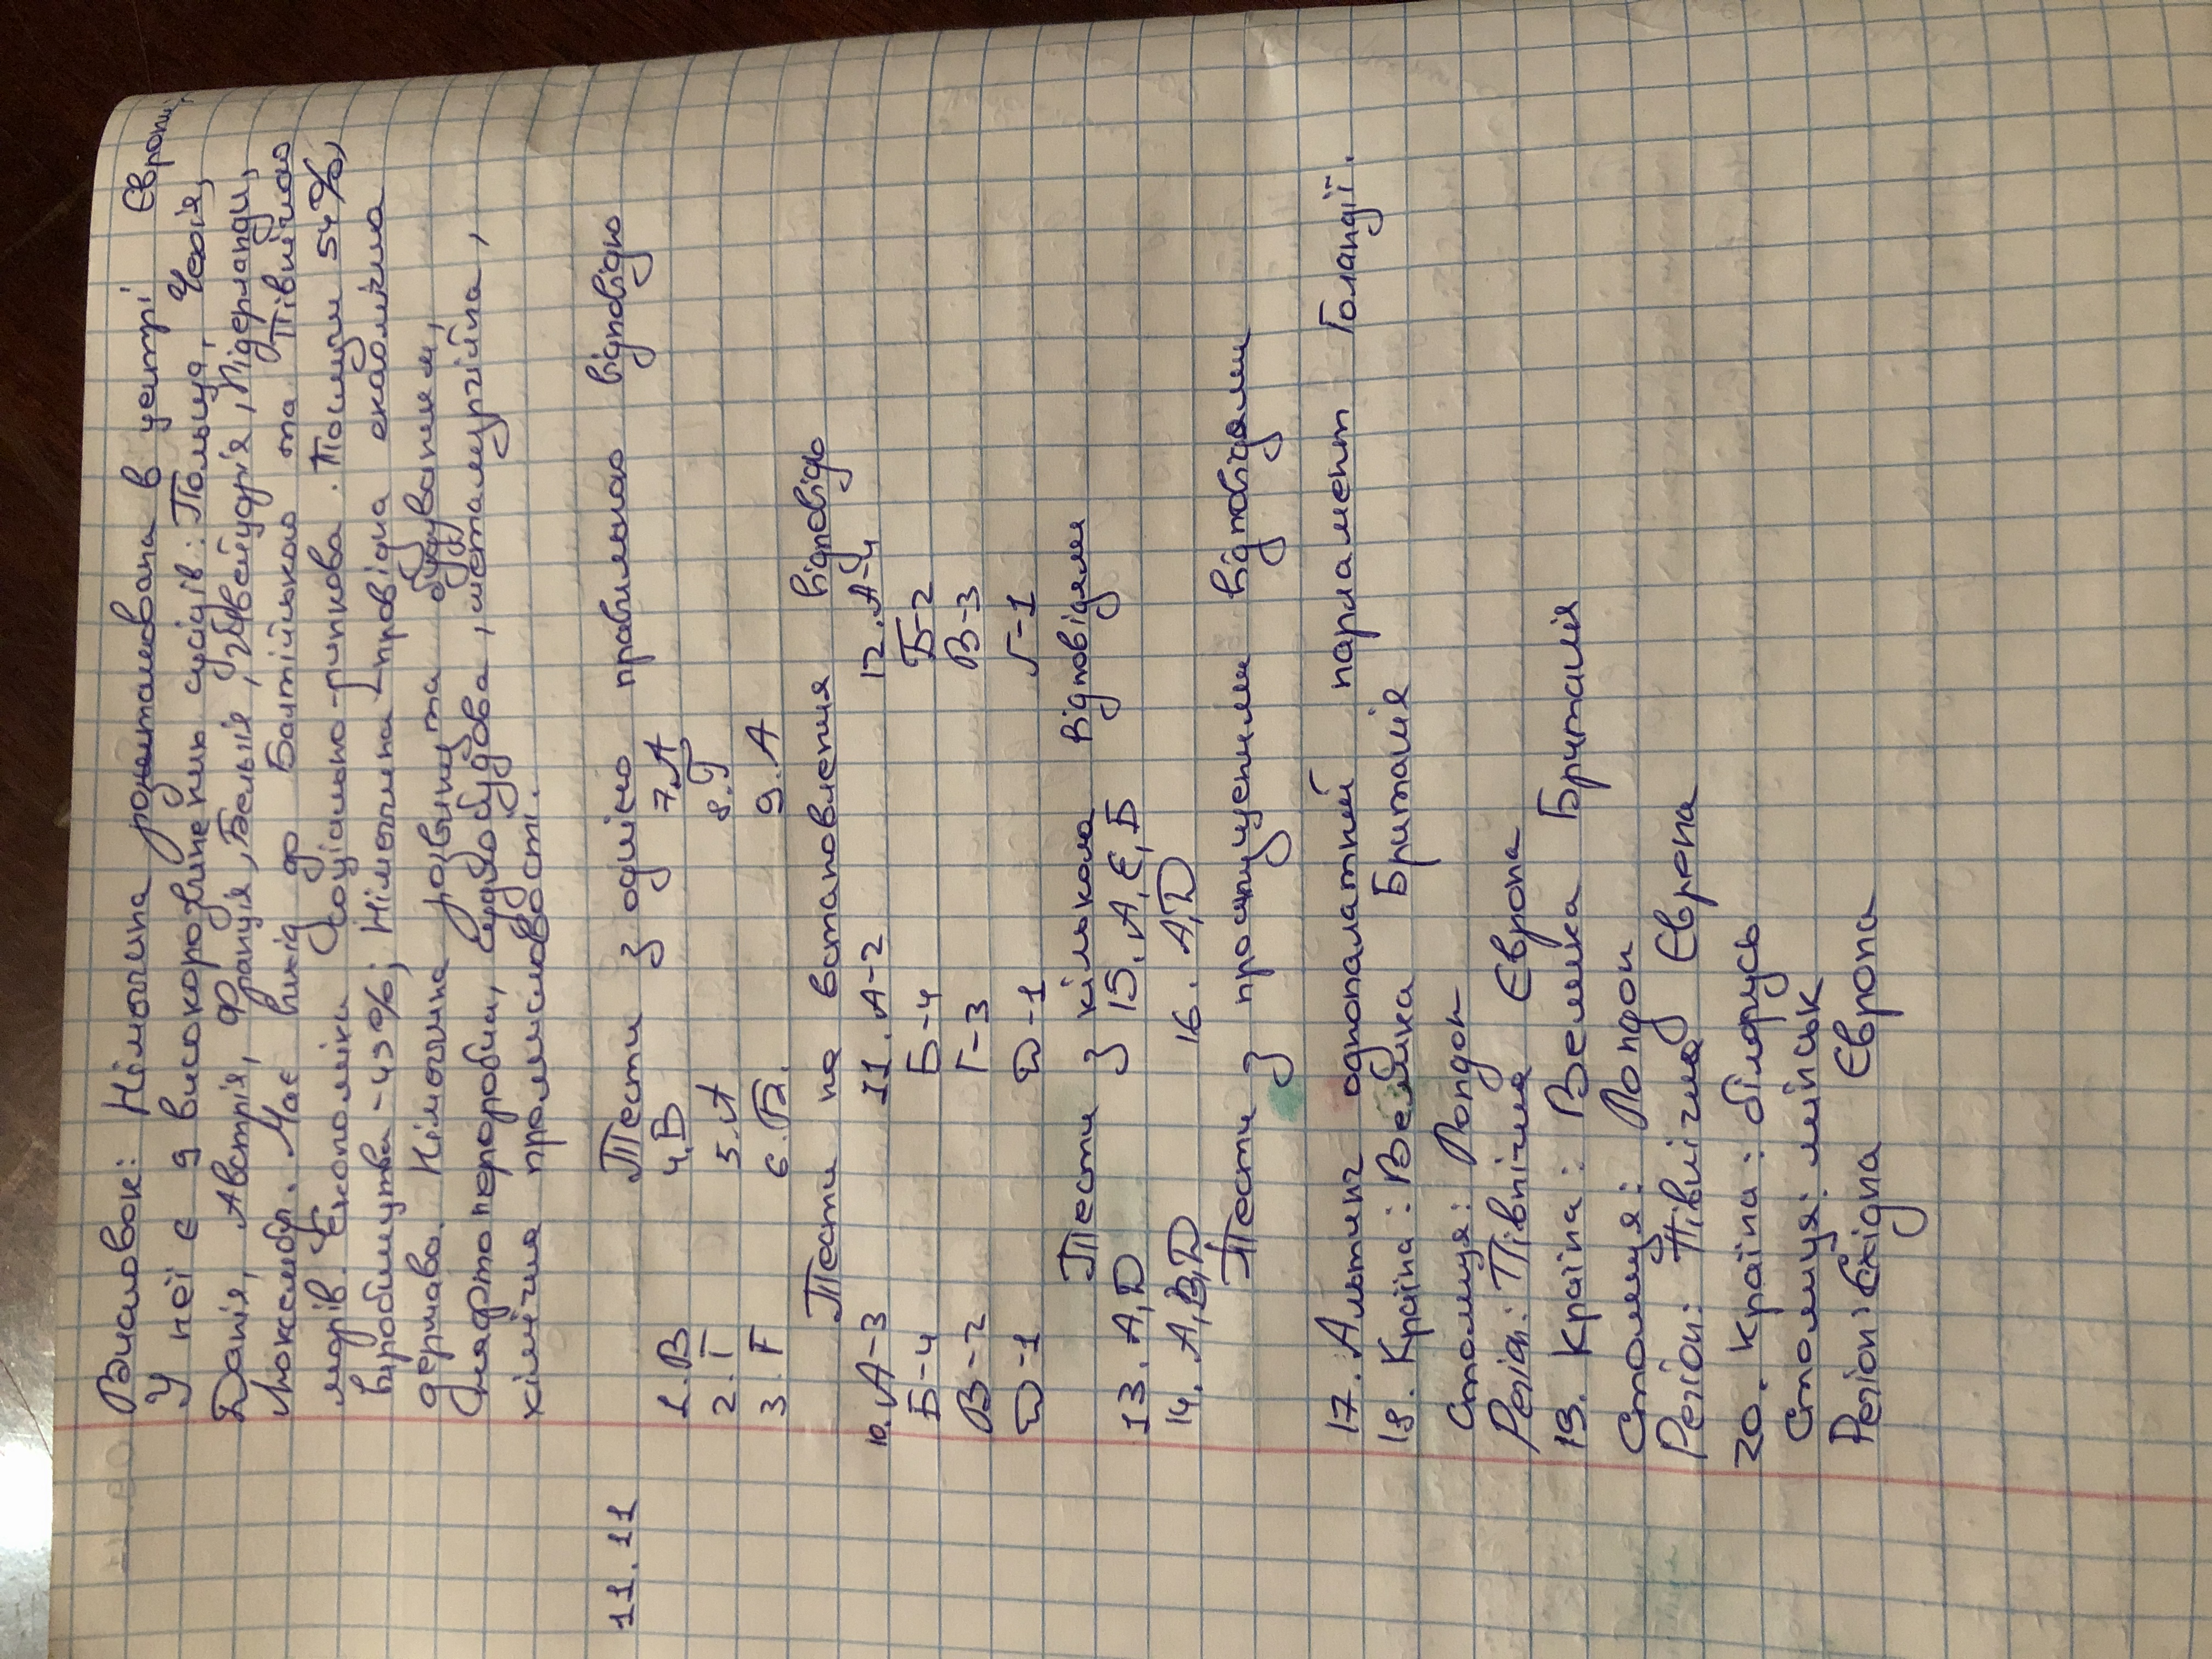 Висновок: Німеччина розташована в центрі Європи,
У неї є 9 високорозвинених сусідів: Польща, Чехія,
Данія, Австрія, Франція, Бельгія, Швейцарія, Нідерланди,
Люксембург. Має вихід до Балтійського та Північного
морів. Економіка соціально-ринкова. Послуги 54%,
виробництва - 43%; Німеччина - провідна економічна
держава. Німеччина розвинута будуванням,
хімічна промисловості.
11.11 Тести з однією правильною відповідю
1.В 4.В 7.А
2.Г 5.А 8.Г
3.Г 6.Б. 9.А
Тести на встановлення відповідь
10.А-3 11.А-2 12.А-4
Б-4 Б-4 Б-2
В-2 Г-3 В-3
Д-1 Д-1 Г-1
Тести з кількома відповідями
13.А,Д 15.А,Є,Б
14.А,В,Д 16.А,Д
Тести з пропущеними відповідями
17. Альтинг однопалатний парламент Голандії.
18. Країна: Велика Британія
Столиця: Лондон
Регіон: Північна Європа
19. Країна: Велика Бриталія
Столиця: Лондон
Регіон: Північна Європа
20. Країна: білорусь
Столиця: мінськ
Регіон: Східна Європа